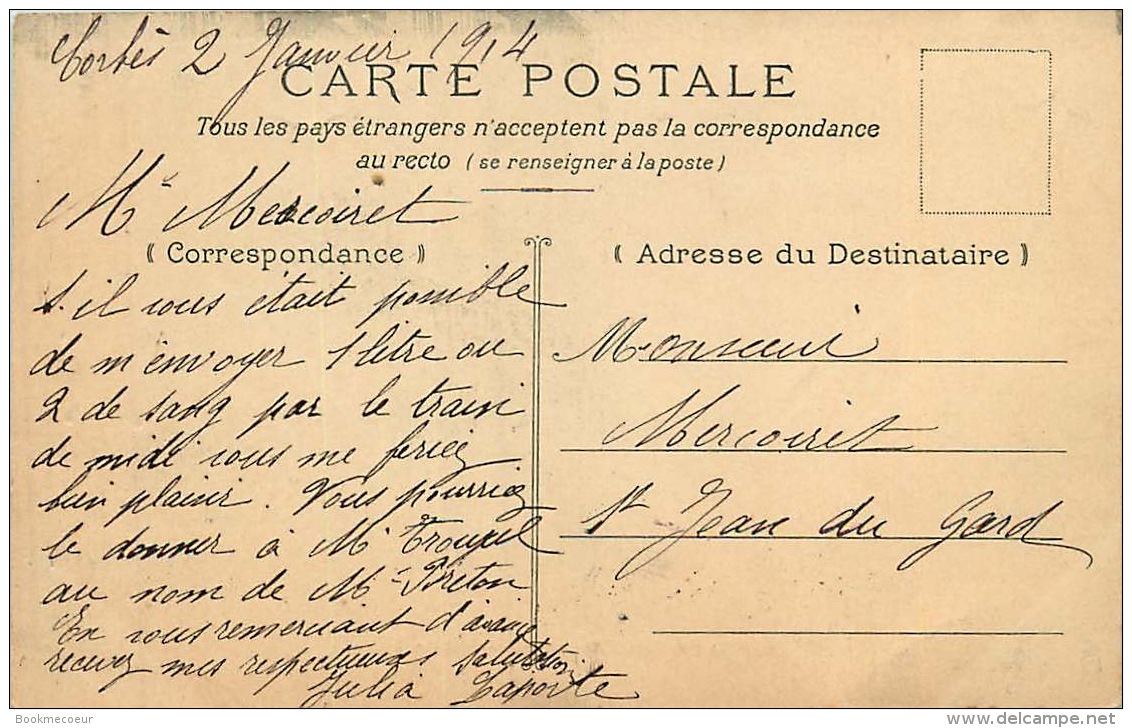 Corbès 2 Janvier 1914
CARTE POSTALE
Tous les pays étrangers n'acceptent pas la correspondance
au recto (se renseigner à la poste)
Mr Mercoiret
(Correspondance)
s'il vous était possible
de m'envoyer 1 litre ou
2 de sang par le train
de midi vous me feriez
bien plaisir. Vous pourriez
le donner à Mr
au nom de Mr Breton
En vous remerciant d'avance
recevez mes respectueuses salutations
Julia Laporte
(Adresse du Destinataire)
Monsieur
Mercoiret
St Jean du Gard
Bookmecoeur
www.delcampe.net